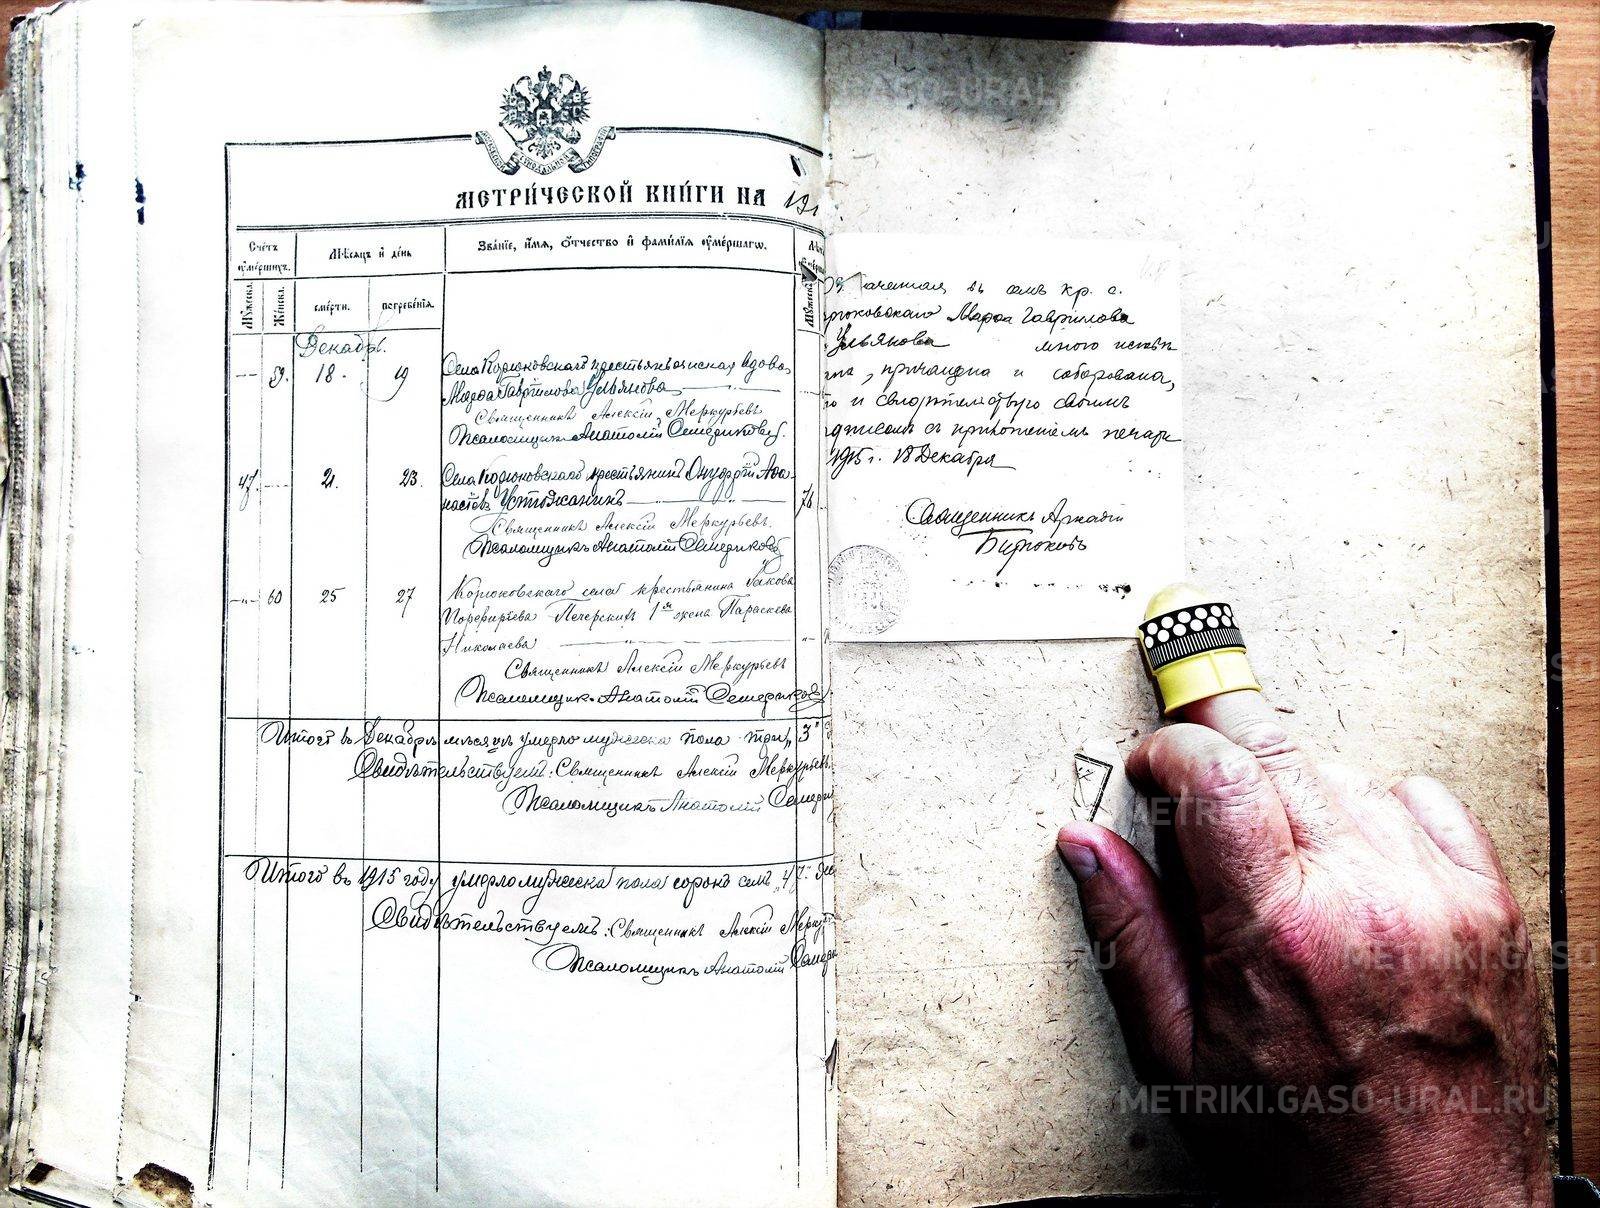 МЕТРИ́ЧЕСКОЙ КНИ́ГИ НА 191
Счетъ ᲂу҆ме́ршихъ.
Мѣсяцъ и҆ де́нь
Зва́нїе, и҆́мѧ, ѻ҆́тчество и҆ фами́лїѧ ᲂу҆ме́ршагѡ.
Мꙋжеска.
Же́нска.
сме́рти.
погребе́нїѧ.
Мꙋжеска
Декабрь.
59. 18. 19 Села Корюковскаго крестьянская вдова
Марѳа Гаврилова Ульянова
Священникъ Алексій Меркурьевъ
Псаломщикъ Анатолій Семериковъ.
47. 21. 23. Села Корюковскаго крестьянинъ Онуфрій Аѳа-
насіевъ Устюжанинъ 76
Священникъ Алексій Меркурьевъ.
Псаломщикъ Анатолій Семериковъ
60 25 27 Корюковскаго села крестьянина Іакова
Порфирьева Печерскихъ 1ая жена Параскева
Николаева
Священникъ Алексій Меркурьевъ
Псаломщикъ Анатолій Семериковъ
Итого въ Декабрѣ мѣсяцѣ умерло мужеска пола три „3"
Свидѣтельствуемъ: Священникъ Алексій Меркурьевъ.
Псаломщикъ Анатолій Семери
Итого въ 1915 году умерло мужеска пола сорокъ семь „47"
Свидѣтельствуемъ: Священникъ Алексій Меркур
Псаломщикъ Анатолій Семери
въ селѣ кр. с.
рюковскаго Марѳа Гаврилова
Ульянова много
причащена и соборована,
и свидѣтельствую своимъ
дписомъ съ приложеніемъ печати
1915 г. 18 Декабря
Священникъ Аркадій
Бирюковъ
GASO-URAL
METRIKI
METRIKI.GASO
METRIKI.GASO-URAL.RU